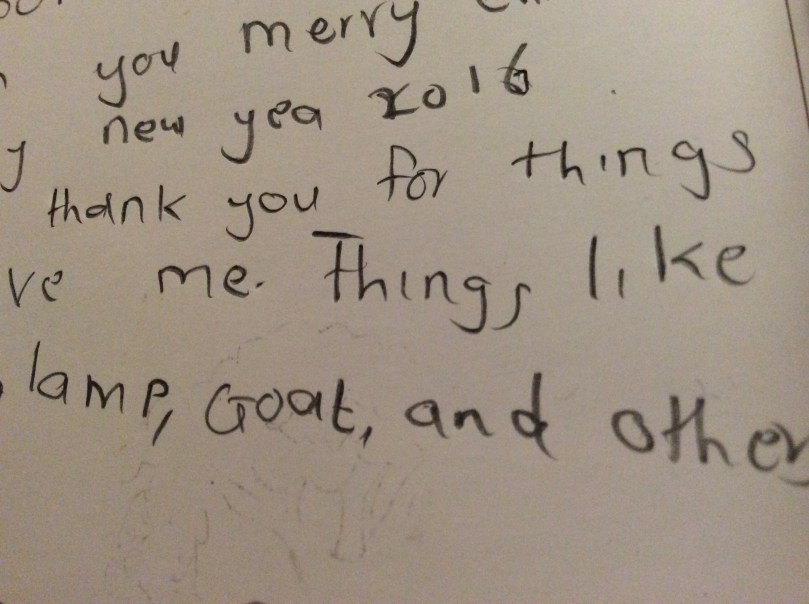 you merry
new yea 2016
thank you for things
ve me. Things like
lamp, Goat, and other